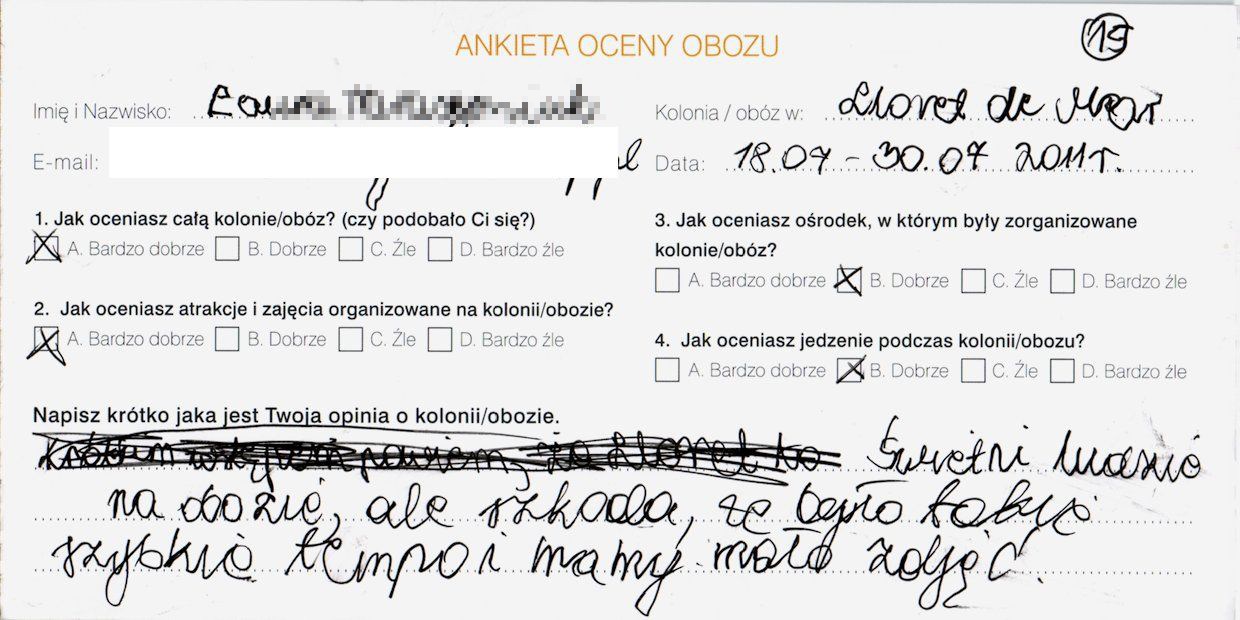 ANKIETA OCENY OBOZU
15
Imię i Nazwisko:
Kolonia / obóz w: Lloret de Mar
E-mail: pl
Data: 18.07 - 30.07 2011 r.
1. Jak oceniasz całą kolonie/obóz? (czy podobało Ci się?)
A. Bardzo dobrze B. Dobrze C. Źle D. Bardzo źle
2. Jak oceniasz atrakcje i zajęcia organizowane na kolonii/obozie?
A. Bardzo dobrze B. Dobrze C. Źle D. Bardzo źle
3. Jak oceniasz ośrodek, w którym były zorganizowane
kolonie/obóz?
A. Bardzo dobrze B. Dobrze C. Źle D. Bardzo źle
4. Jak oceniasz jedzenie podczas kolonii/obozu?
A. Bardzo dobrze B. Dobrze C. Źle D. Bardzo źle
Napisz krótko jaka jest Twoja opinia o kolonii/obozie.
Świetni ludzie
na obozie, ale szkoda, że było takie
szybkie tempo i mamy mało zdjęć.